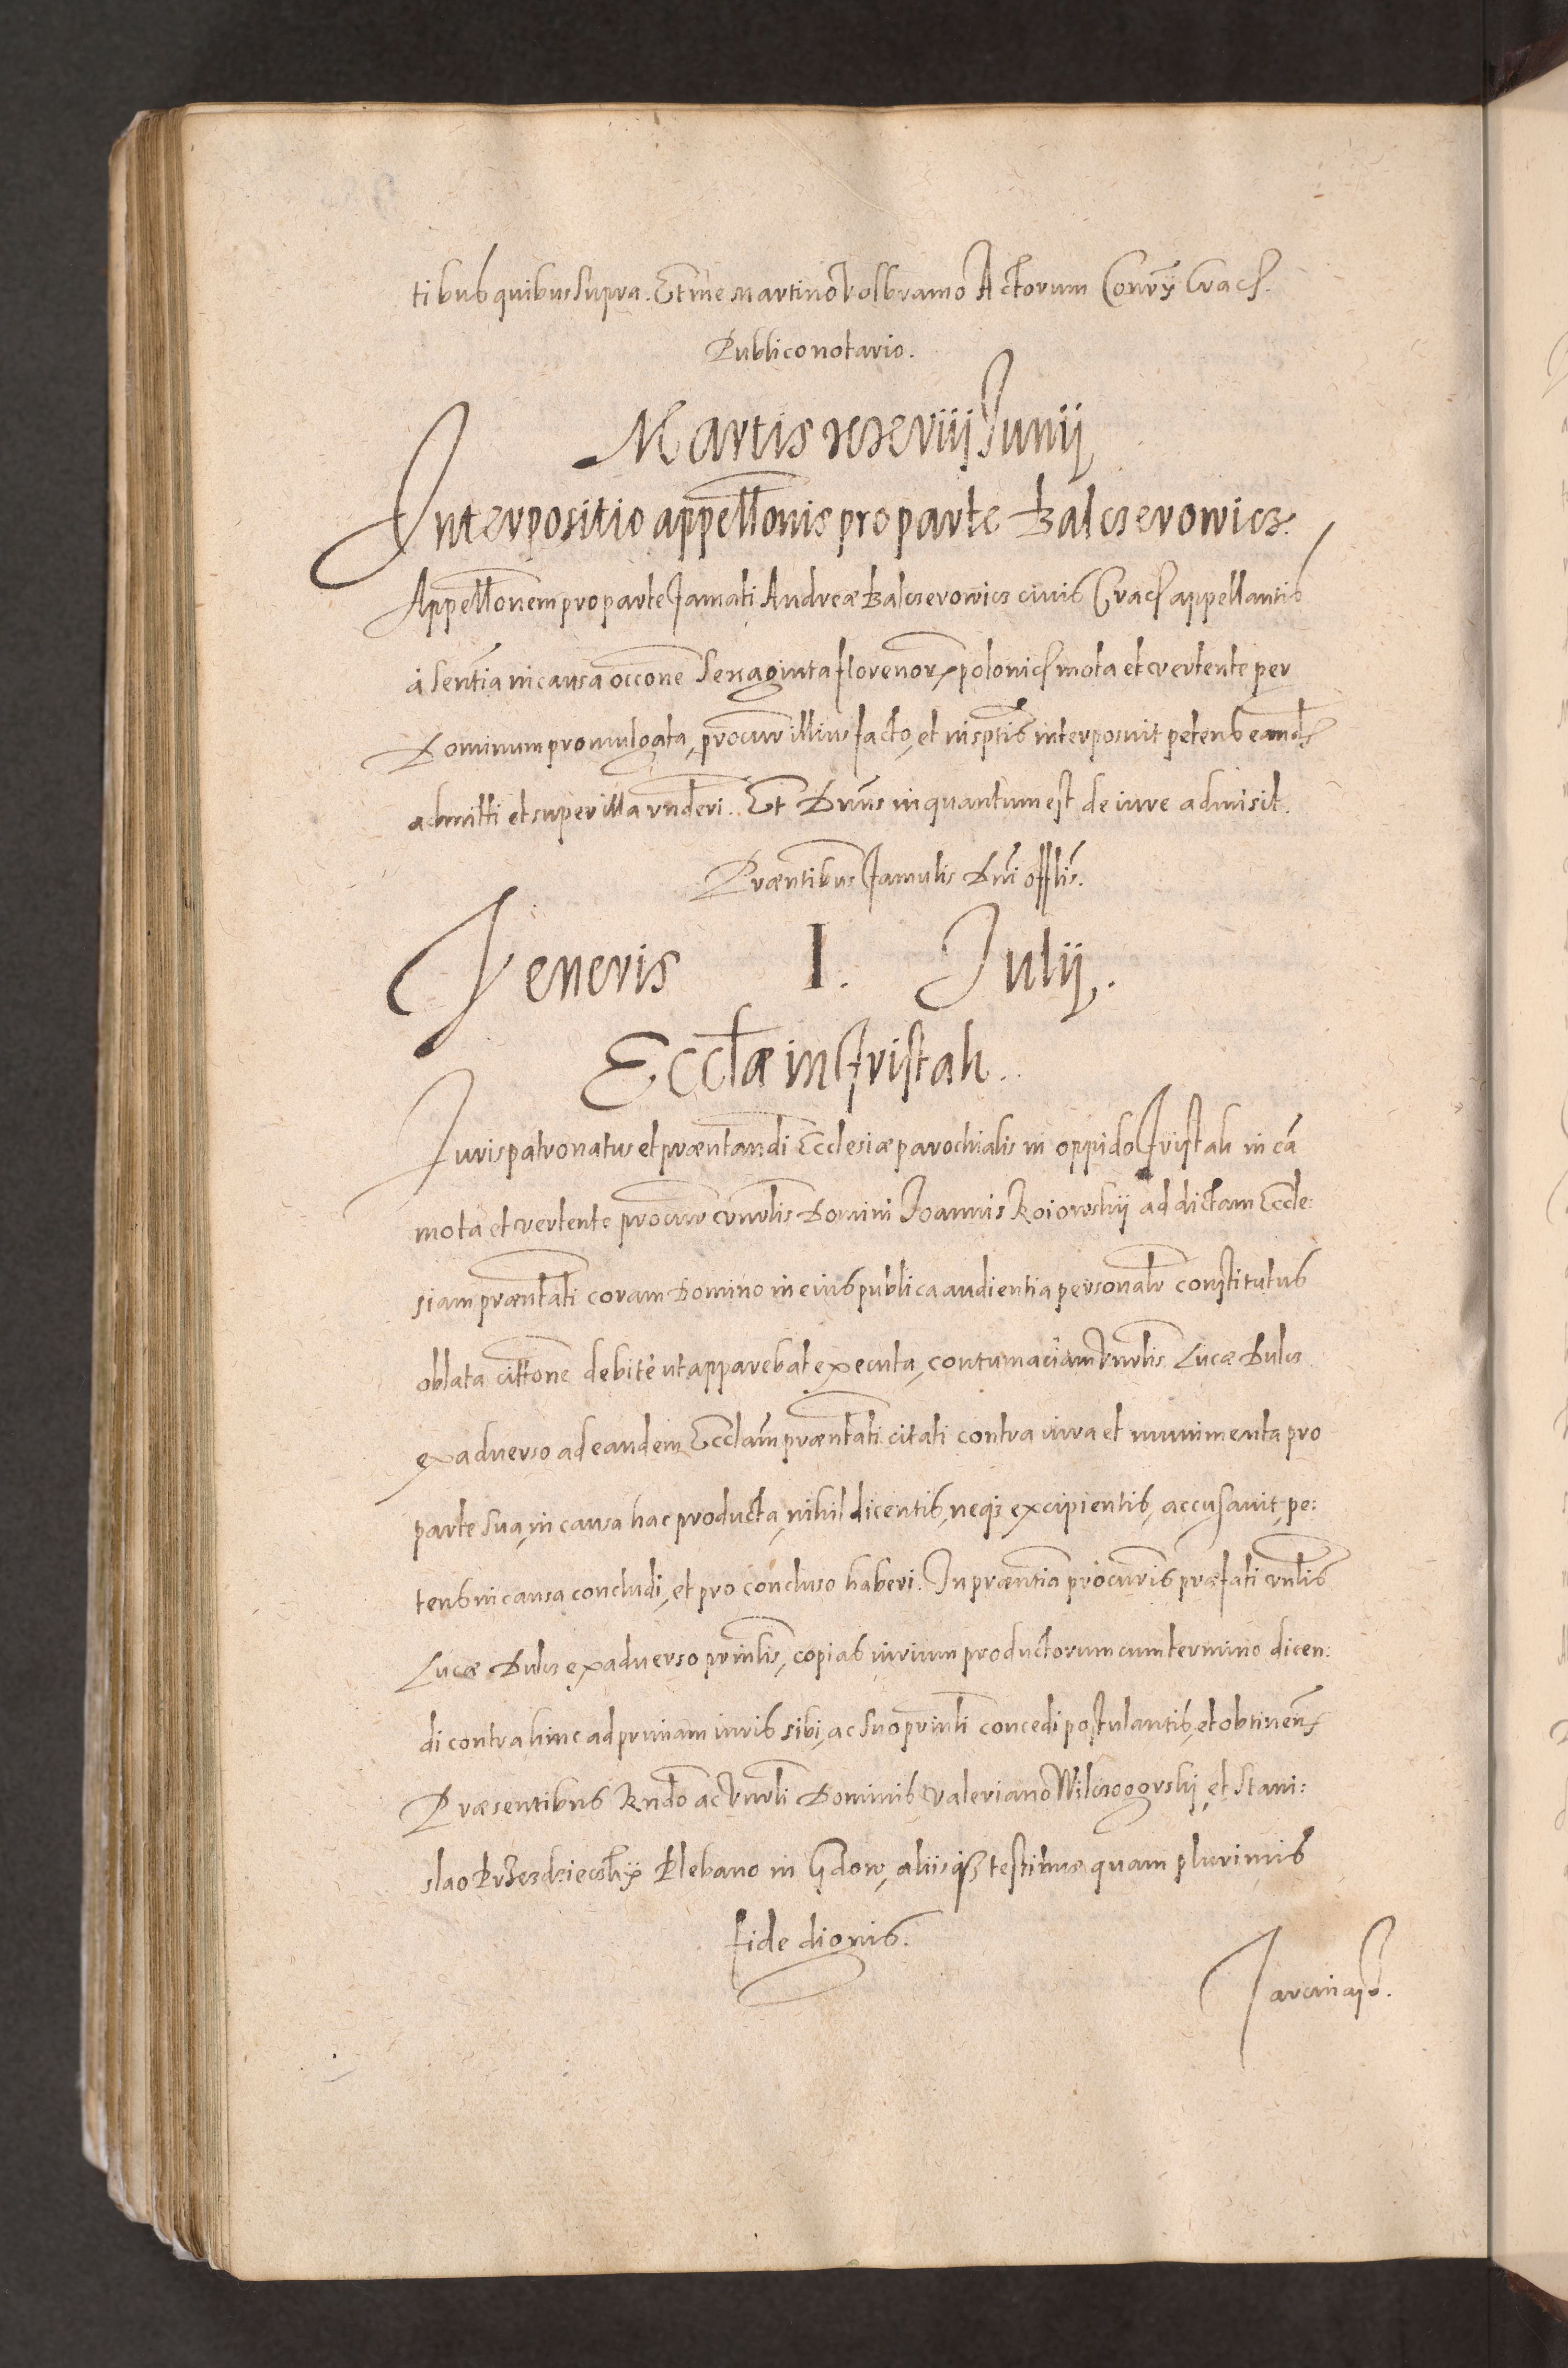 tibus quibus supra. Et me Martino Volbramo Actorum Consry Cracꝭ.
Publico notario.
Martis xxviii Junii
Interpositio appellonis pro parte Balcserowicz.
Appellonem pro parte famati Andreæ Balcserowicz civis Cracꝭ appellantis
à sentia in causa occone sexaginta florenorꝝ polonicꝭ mota et vertente per
Dominum promulgata, procur illius facto, et in sptis interposuit petens eandꝭ
admitti et super illa rnderi. Et Dnus in quantum est de iure admisit.
Præntibus famulis Dni offlis.
Veneris I. Julii.
Ecclæ in Fristah.
Juris patronatus et præntandi Ecclesiæ parochialis in oppido Fristah in ca
mota et vertente procur vnrlis Domini Joannis Koiowskij ad dictam Eccle:
siam præntati coram Domino in eius publica audientia personalr constitutus
oblata cittone debitè ut apparebat executa, contumaciam Vnrlis Lucæ Dulcz
ex adverso ad eandem Ecclam præntati citati contra iura et munimenta pro
parte sua, in causa hac producta, nihil dicentis, neqꝫ excipientis, accusavit, pe:
tens in causa concludi, et pro concluso haberi. In præntia procuris præfati vnrlis
Lucæ Dulcz ex adverso prinlis, copias iurium productorum cum termino dicen:
di contra hinc ad primam iuris sibi, ac suo prinli concedi postulantis, et obtinenꝭ
Præsentibus Rndo ac Vnrli Dominis Valeriano Wilczogorskij, et Stani:
slao Przezdzieczkÿ Plebano in Gdow, aliisqꝫ testibus quam plurimis
fide dignis.